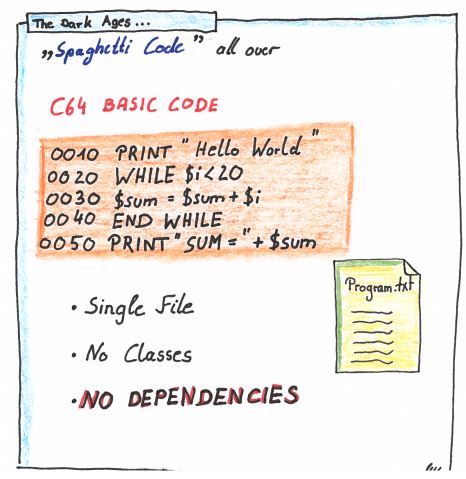 The Dark Ages...
„Spaghetti Code" all over
C64 BASIC CODE
0010 PRINT "Hello World"
0020 WHILE $i<20
0030 $sum = $sum + $i
0040 END WHILE
0050 PRINT "SUM = " + $sum
Program.txt
• Single File
• No Classes
• NO DEPENDENCIES